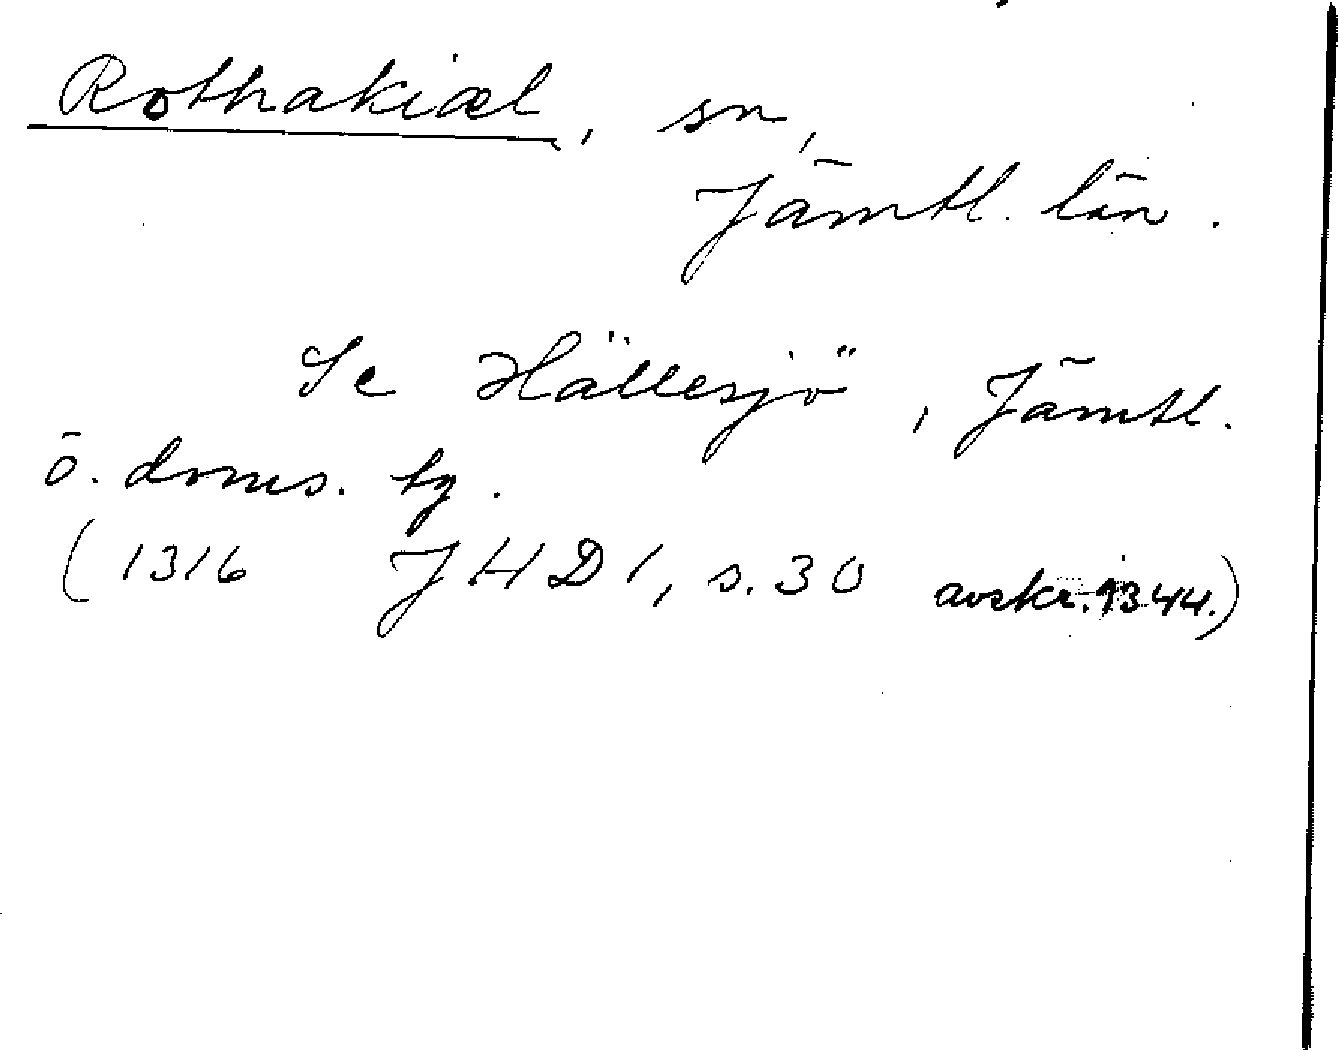 Rothakiæl, sn,
Jämtl. län.
Se Hällesjö, Jämtl.
ö. doms. tg.
(1316 JHD 1, s. 30 avskr. 1344.)